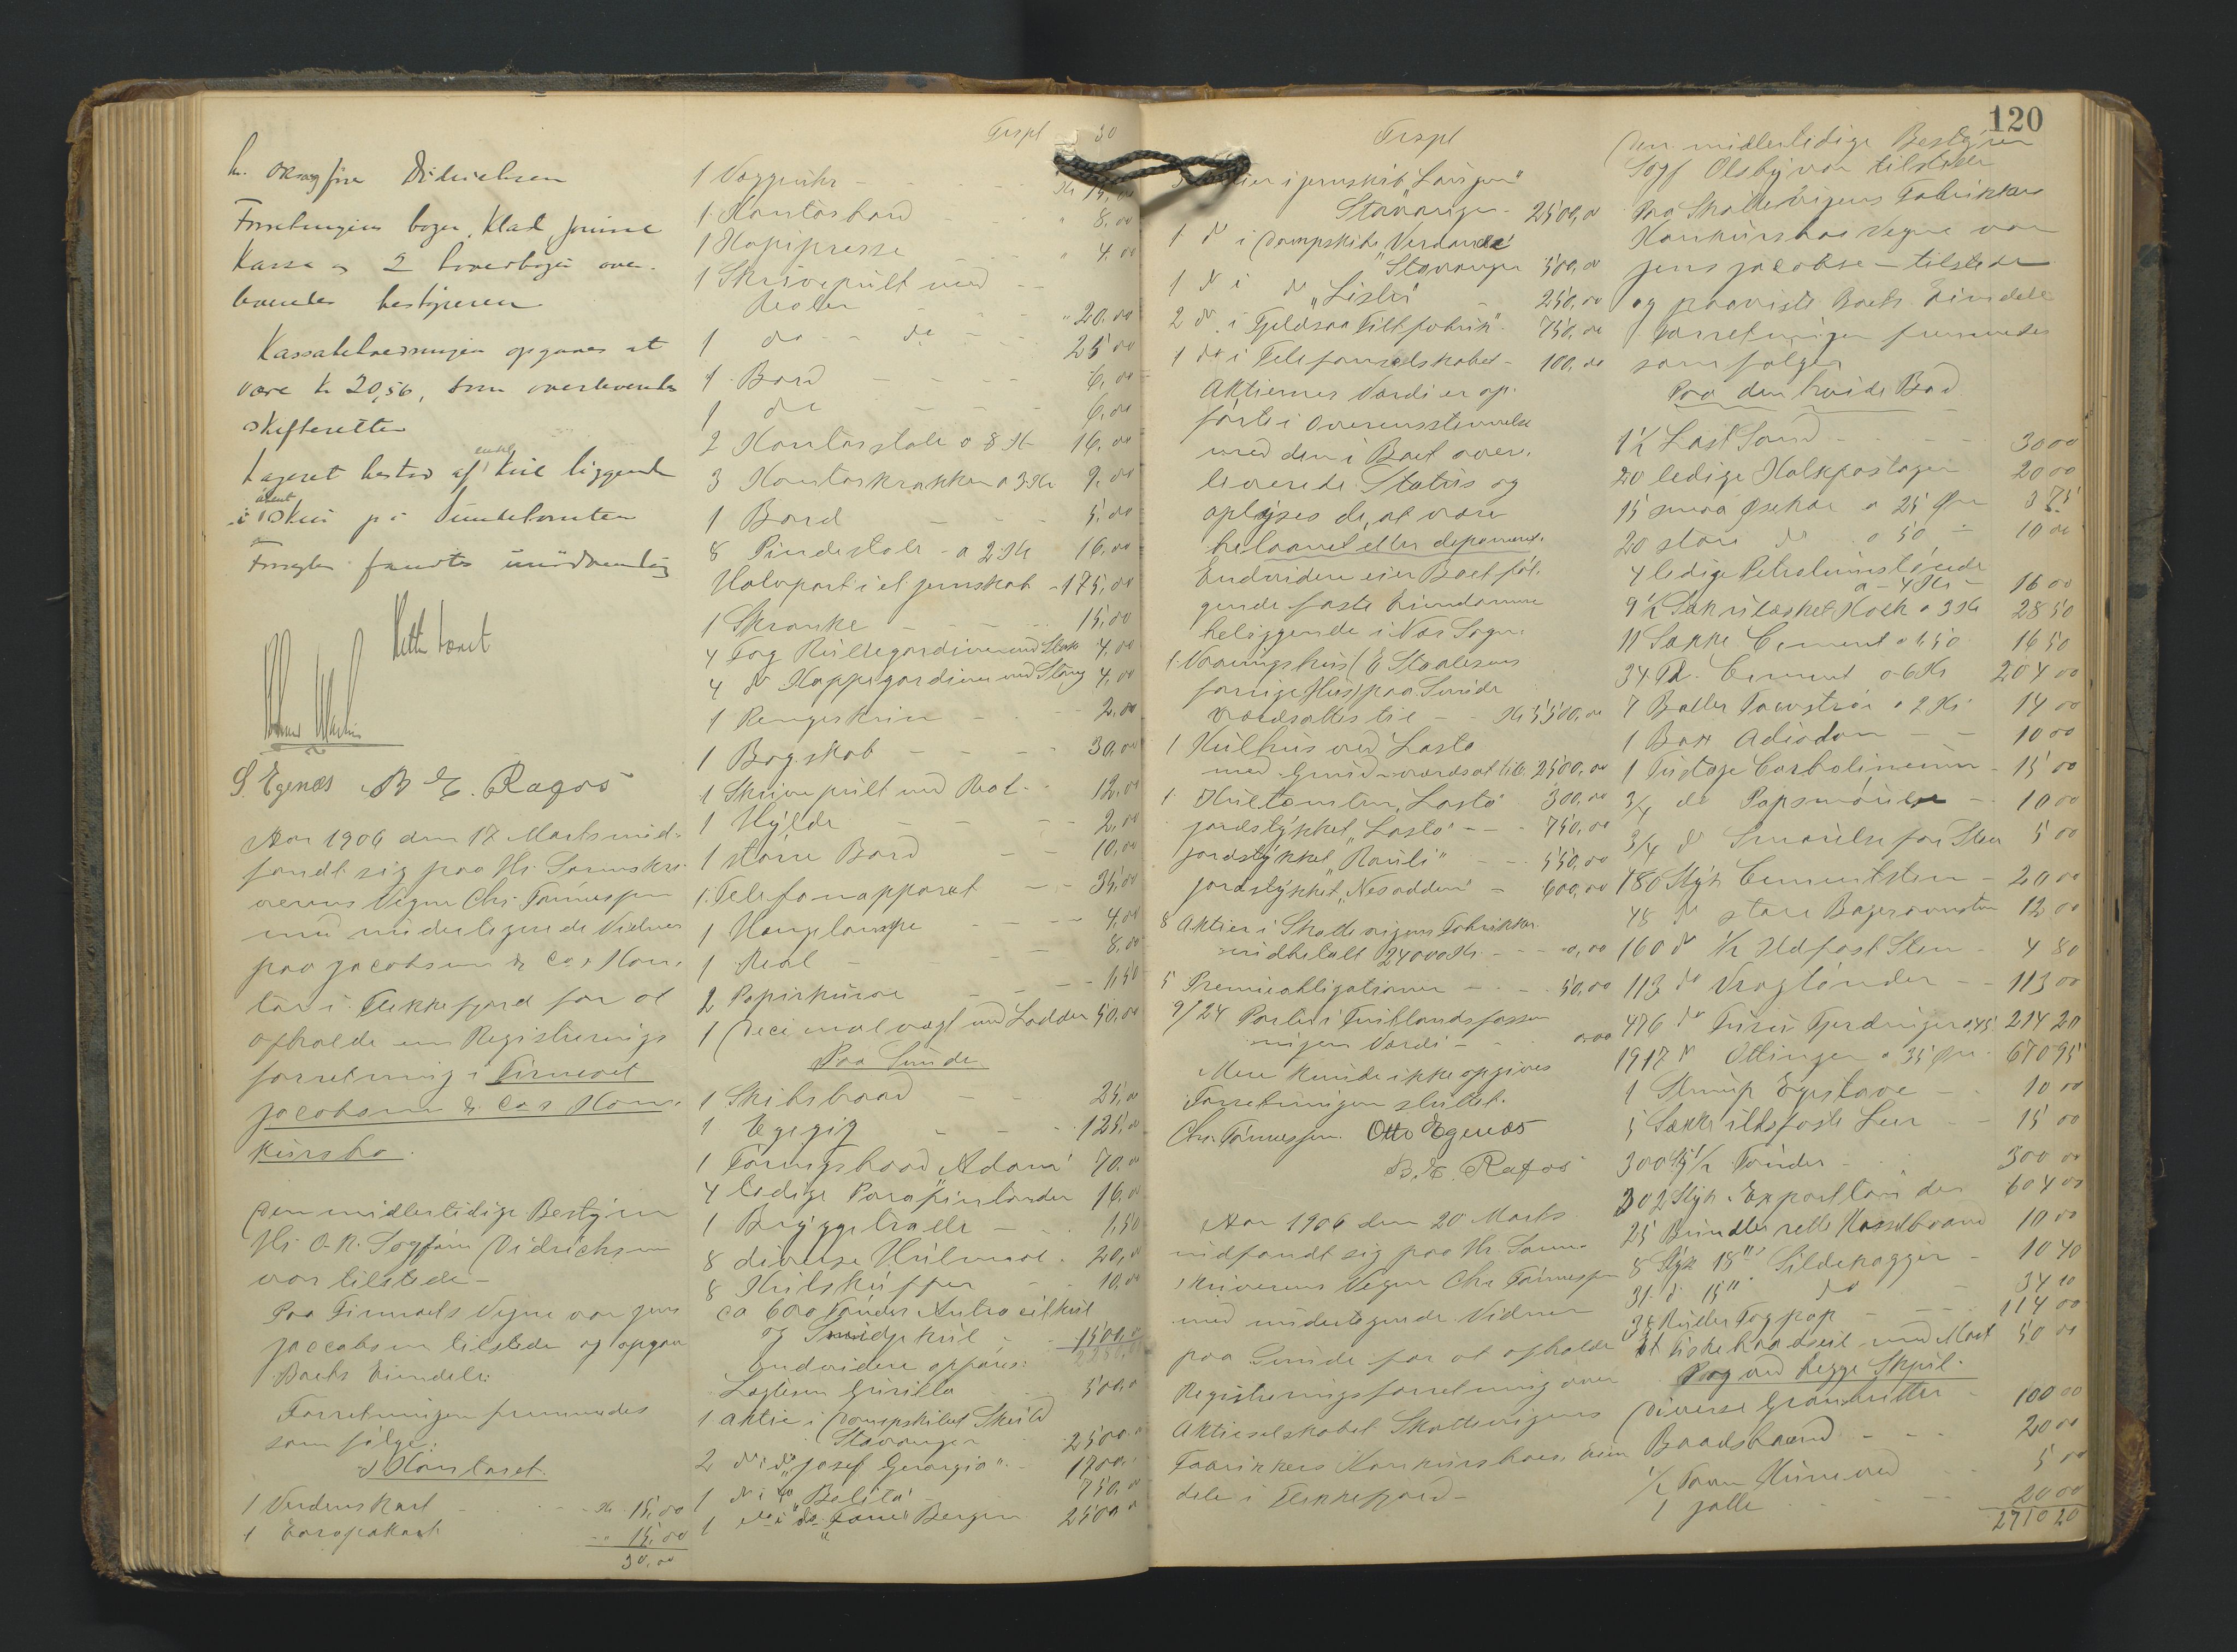 Trspt 30
hr. Oksagfører Didrichsen
Forretningens bøger, Klad, journal
Kassa og 2 hovedbøger over-
leveredes bestyreren
Kassabeholdningen opgaves at
være kr 20,56, som overleveredes
skifteretten
Lageret bestod af enkel kul liggende
i skur på kultomten
Forsegling fandtes unødvendig
Rett hævet
S. Egenæs B. E. Rafos
Aar 1906 den 17 Marts ind-
fandt sig paa Hr. Sorenskri-
verens Vegne Chr. Tønnessen
med undertegnede Vidner
paa Jacobsen & Co.s Kon-
tor i Flekkefjord for at
afholde en Registrerings
forretning i Firmaet
Jacobsen & Co.s Kon-
kursbo.
Den midlertidige Bestyrer
Hr. O.R. Sagfører Didrichsen
var tilstede –
Paa Firmaets Vegne var Jens
Jacobsen tilstede og opgav
Boets Eiendele:
Forretningen fremmedes
som følger:
I Kontoret.
1 Verdenskart - Kr. 15,00
1 Europakart - " 15,00
30,00
1 Vægguhr - Kr 15,00
1 Kontorbord " 8,00
1 Kopipresse " 4,00
1 Skrivepult med
Reoler " 20,00
1 do - do - 25,00
1 Bord - 6,00
1 do - 6,00
2 Kontorstole a 8 Kr 16,00
3 Kontorkrakker a 3 Kr 9,00
1 Bord - 5,00
8 Pindestole - a 2 Kr 16,00
Halvpart i et jernskab - 175,00
1 Skranke - 15,00
4 Fag Rullegardiner med Stok 4,00
4 do Kappegardiner med Stang 4,00
1 Pengeskrin - 2,00
1 Bogskab - 30,00
1 Skrivepult med Reol - 12,00
1 Hylde - 2,00
1 større Bord - 10,00
1 Telefonapparat - 35,00
1 Hængelampe - 4,00
1 Reol - 8,00
2 Papirkurve - 1,50
1 Decimalvægt med Lodder 50,00
Paa Sunde
1 Skibsbaad - 25,00
1 Egegig - 125,00
1 Føringsbaad "Adam" 70,00
4 ledige Parafintønder 16,00
1 Bryggetralle - 1,50
8 diverse Kulmaal - 20,00
8 Kulskuffer - 10,00
ca 600 Tønder Antracitkul
og Smidjekul - 1500,00
Endvidere opføres:
Lægteren Gurilla 500,00
1 aktie i Dampskibet Skuld
Stavanger 2500,00
2 do i do "Josef Georgio" 1900,00
1 do i do "Belita" 750,00
1 do i do Bergen 2500,00
Trspt
i jernskib "Laugen"
Stavanger - 2500,00
1 do i Dampskibet "Verdande"
Stavanger 500,00
1 do i do "Lister" - 250,00
2 do i Fjeldsaa Filtfabrik". 750,00
1 do i Telefonselskabet - 100,00
Aktiernes Værdi er op-
førte i Overensstemmelse
med den i Boet over-
leverede Status og
oplyses de, at være
belaanet eller deponeret.
Endvidere eier Boet føl-
gende faste Eiendomme
beliggende i Nes Sogn:
1 Vaaningshus (E Staalesens
forrige Hus) paa Sunde
værdsattes til - Kr 5500,00
1 Kulhus ved Lasta
med Grund - værdsat til 2500,00
1 Kultomten "Lasta" 300,00
jordstykket "Lasta" - 750,00
jordstykket "Rauli" - 550,00
jordstykket "Nesodden" - 600,00
8 Aktier i Skottevigens Fabrikker
indbetalt 24000 Kr - 0,00
5 Premieobligationer - 50,00
9/24 Parter i Tviklandsfossen
ingen Værdi - 0,00
Mere kunde ikke opgives
Forretningen sluttet.
Chr. Tønnessen. Otto Egenæs
B. E. Rafos
Aar 1906 den 20 Marts
indfandt sig paa Hr. Soren-
skriverens Vegne Chr Tønnessen
med undertegnede Vidner
paa Sunde for at afholde
Registreringsforretning over
Aktieselskabet Skottevigens
Fabrikkers Konkursboes Eien
dele i Flekkefjord -
120
Den midlertidige Bestyrer
Sagf Olsby var tilstede
Paa Skottevigens Fabrikkers
Konkursboes Vegne var
Jens Jacobsen tilstede
og paaviste Boets Eiendele
Forretningen fremmedes
som følger
Paa den hvide Bod
1½ Læst Sand - 30 00
20 ledige Kalkfastager 20 00
15 smaa Øsekar a 25 Øre 3 75
20 store do a 50 - 10 00
4 ledige Petroliumstønder
a - 4 Kr - 16 00
9½ Sæk ulæsket Kalk a 3 Kr 28 50
11 Sække Cement a 1,50 16 50
34 Td. Cement a 6 Kr 204 00
7 Baller Tawstrie a 2 Kr 14 00
1 Box Adiodon - 10 00
1 Fustage Carbolineum - 15 00
3/4 do Papsmørelse - 10 00
3/4 do Smørelse for Sten 5 00
180 Styk Cementsten - 20 00
48 do store Bagerovnsten 12 00
160 do ½ Ildfast Sten - 4 80
113 do Vragtønder - 113 00
476 do Furu Fjerdinger a 45 214 20
1917 do Ottinger a 35 Øre 670 95
1 Slump Egestave - 10 00
5 Sække ildsfaste Leer - 15 00
300 Styk ½ Tønder - 300 00
302 Styk Exporttønder 604 00
25 Bundter rette Hasselbaand 10 00
8 Styk 18" Sildekagger - 10 40
31 do 15" do - 34 10
38 Ruller Tagpap - 114 00
Et Fiskebaadseil med Mast 50 00
Bag ved begge Skjul.
Diverse Granitter - 100 00
Baadsbaand - 20 00
½ Favn Kuneved 5 00
1 jolle - 20 00
2710 20